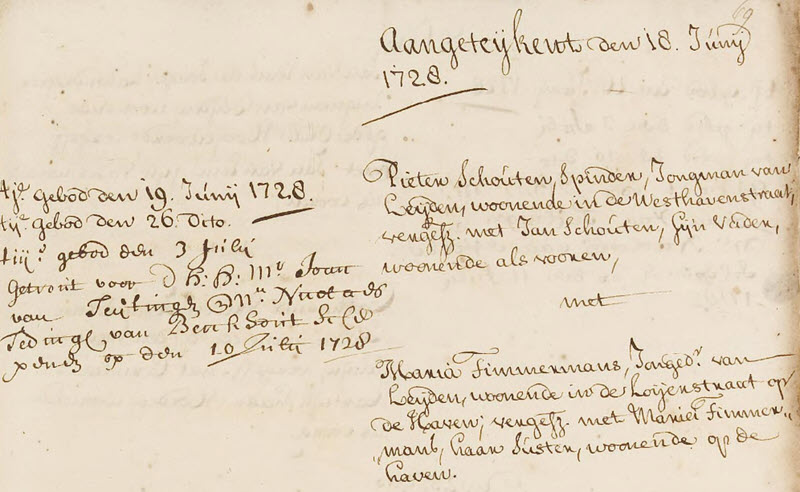 69
Aangeteijkent den 18. Junij
1728.
t'je gebod den 19. Junij 1728.
t'ije gebod den 26. Dito.
t'iije gebod den 3 Julij
Getrout voor d H:H: Mr Joan
van Teijlingen & Mr Nicolaes
Tedingh van Berckhout Sche
penen op den 10 Julij 1728
Pieter Schouten, Spinder, Jongman van
Leijden, woonende in de Westhavenstraat,
vergesz. met Jan Schouten, Zijn Vader,
woonende als vooren,
met
Maria Timmermans, Jongedr. van
Leijden, woonende in de Loijerstraat op
de Haven; vergesz. met Maria Timmer„
„mans, haar Suster, woonende op de
haven.